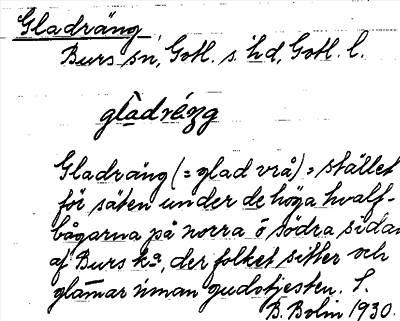 Gladräng
Burs sn, Gotl. s. hd, Gotl. l.
gladräng
Gladräng (= glad vrå) = stället
för säten under de höga hvalf-
bågarna på norra o södra sidan
af Burs ka, der folket sitter och
glammar innan gudstjesten. S.
B. Bolin 1930.